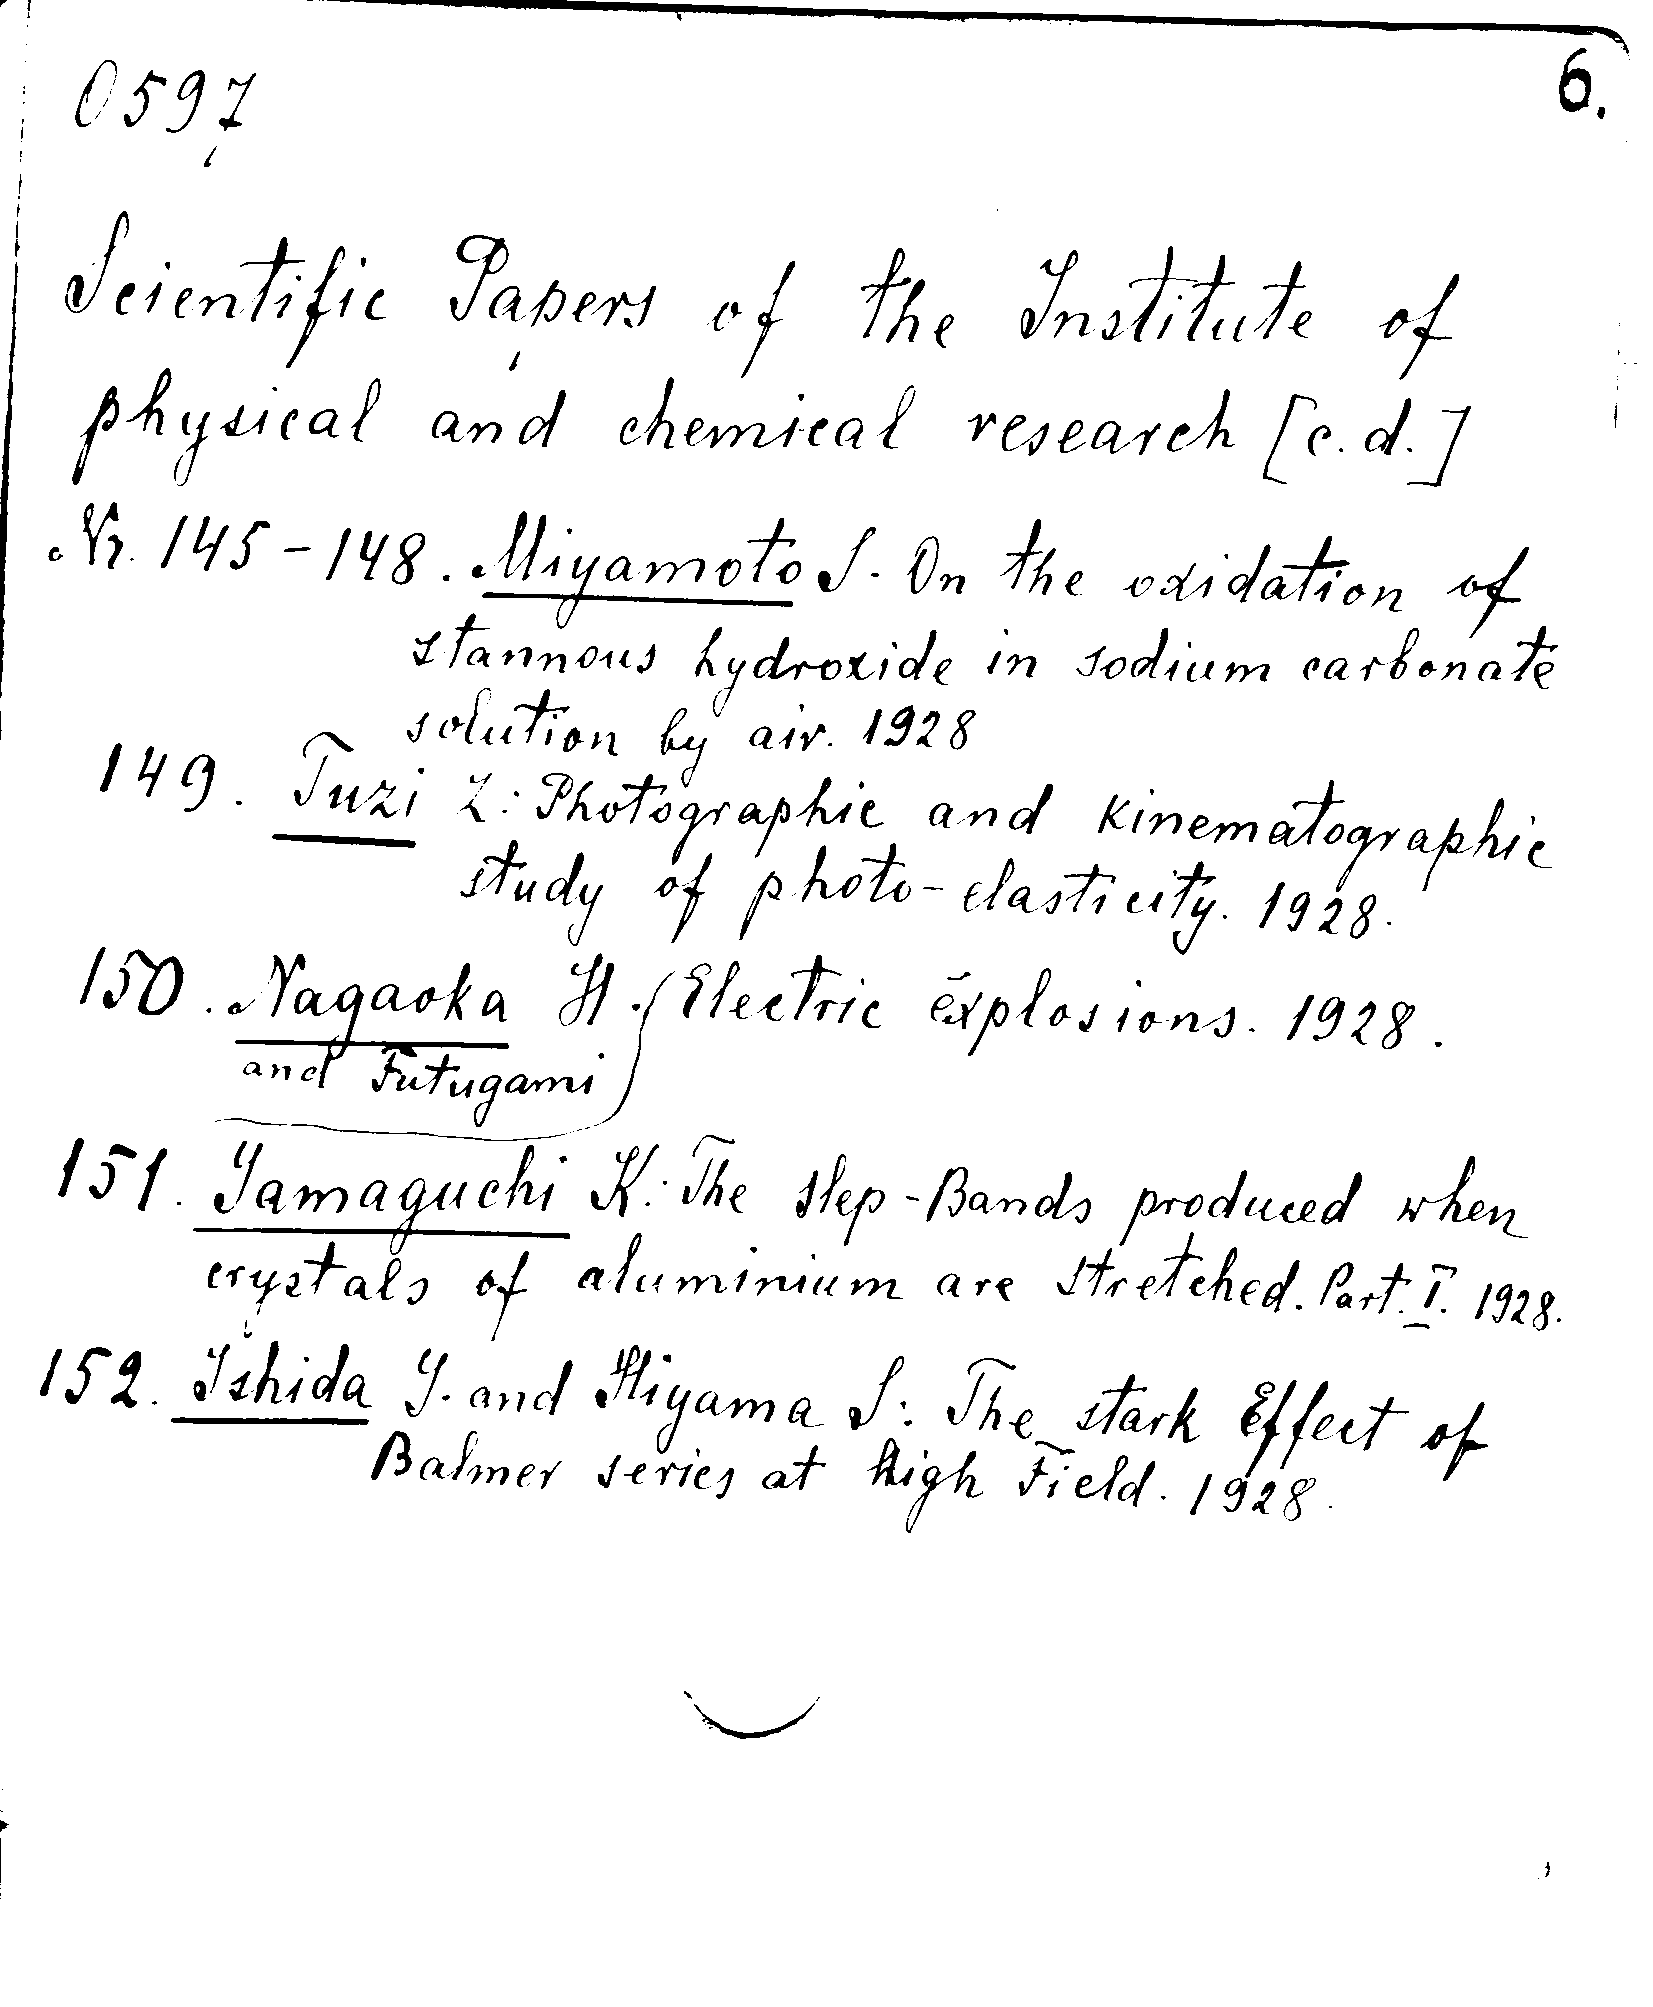 0597
6.
Scientific Papers of the Institute of
physical and chemical research [c.d.]
Nr. 145-148. Miyamoto S. On the oxidation of
stannous hydroxide in sodium carbonate
solution by air. 1928
149. Tuzi Z: Photographic and kinematographic
study of photo-elasticity. 1928.
150. Nagaoka H. Electric explosions. 1928.
and Futugami
151. Yamaguchi K: The slep-Bands produced when
crystals of aluminium are stretched. Part. I. 1928.
152. Ishida Y. and Hiyama S: The stark Effect of
Balmer series at high Field. 1928.